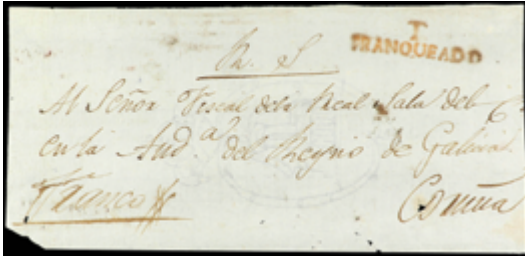 T
FRANQUEADO
R. S
Al Señor Fiscal dela Real Sala del
en la Aud.ª del Reyno de Galicia.
Franco
Coruña